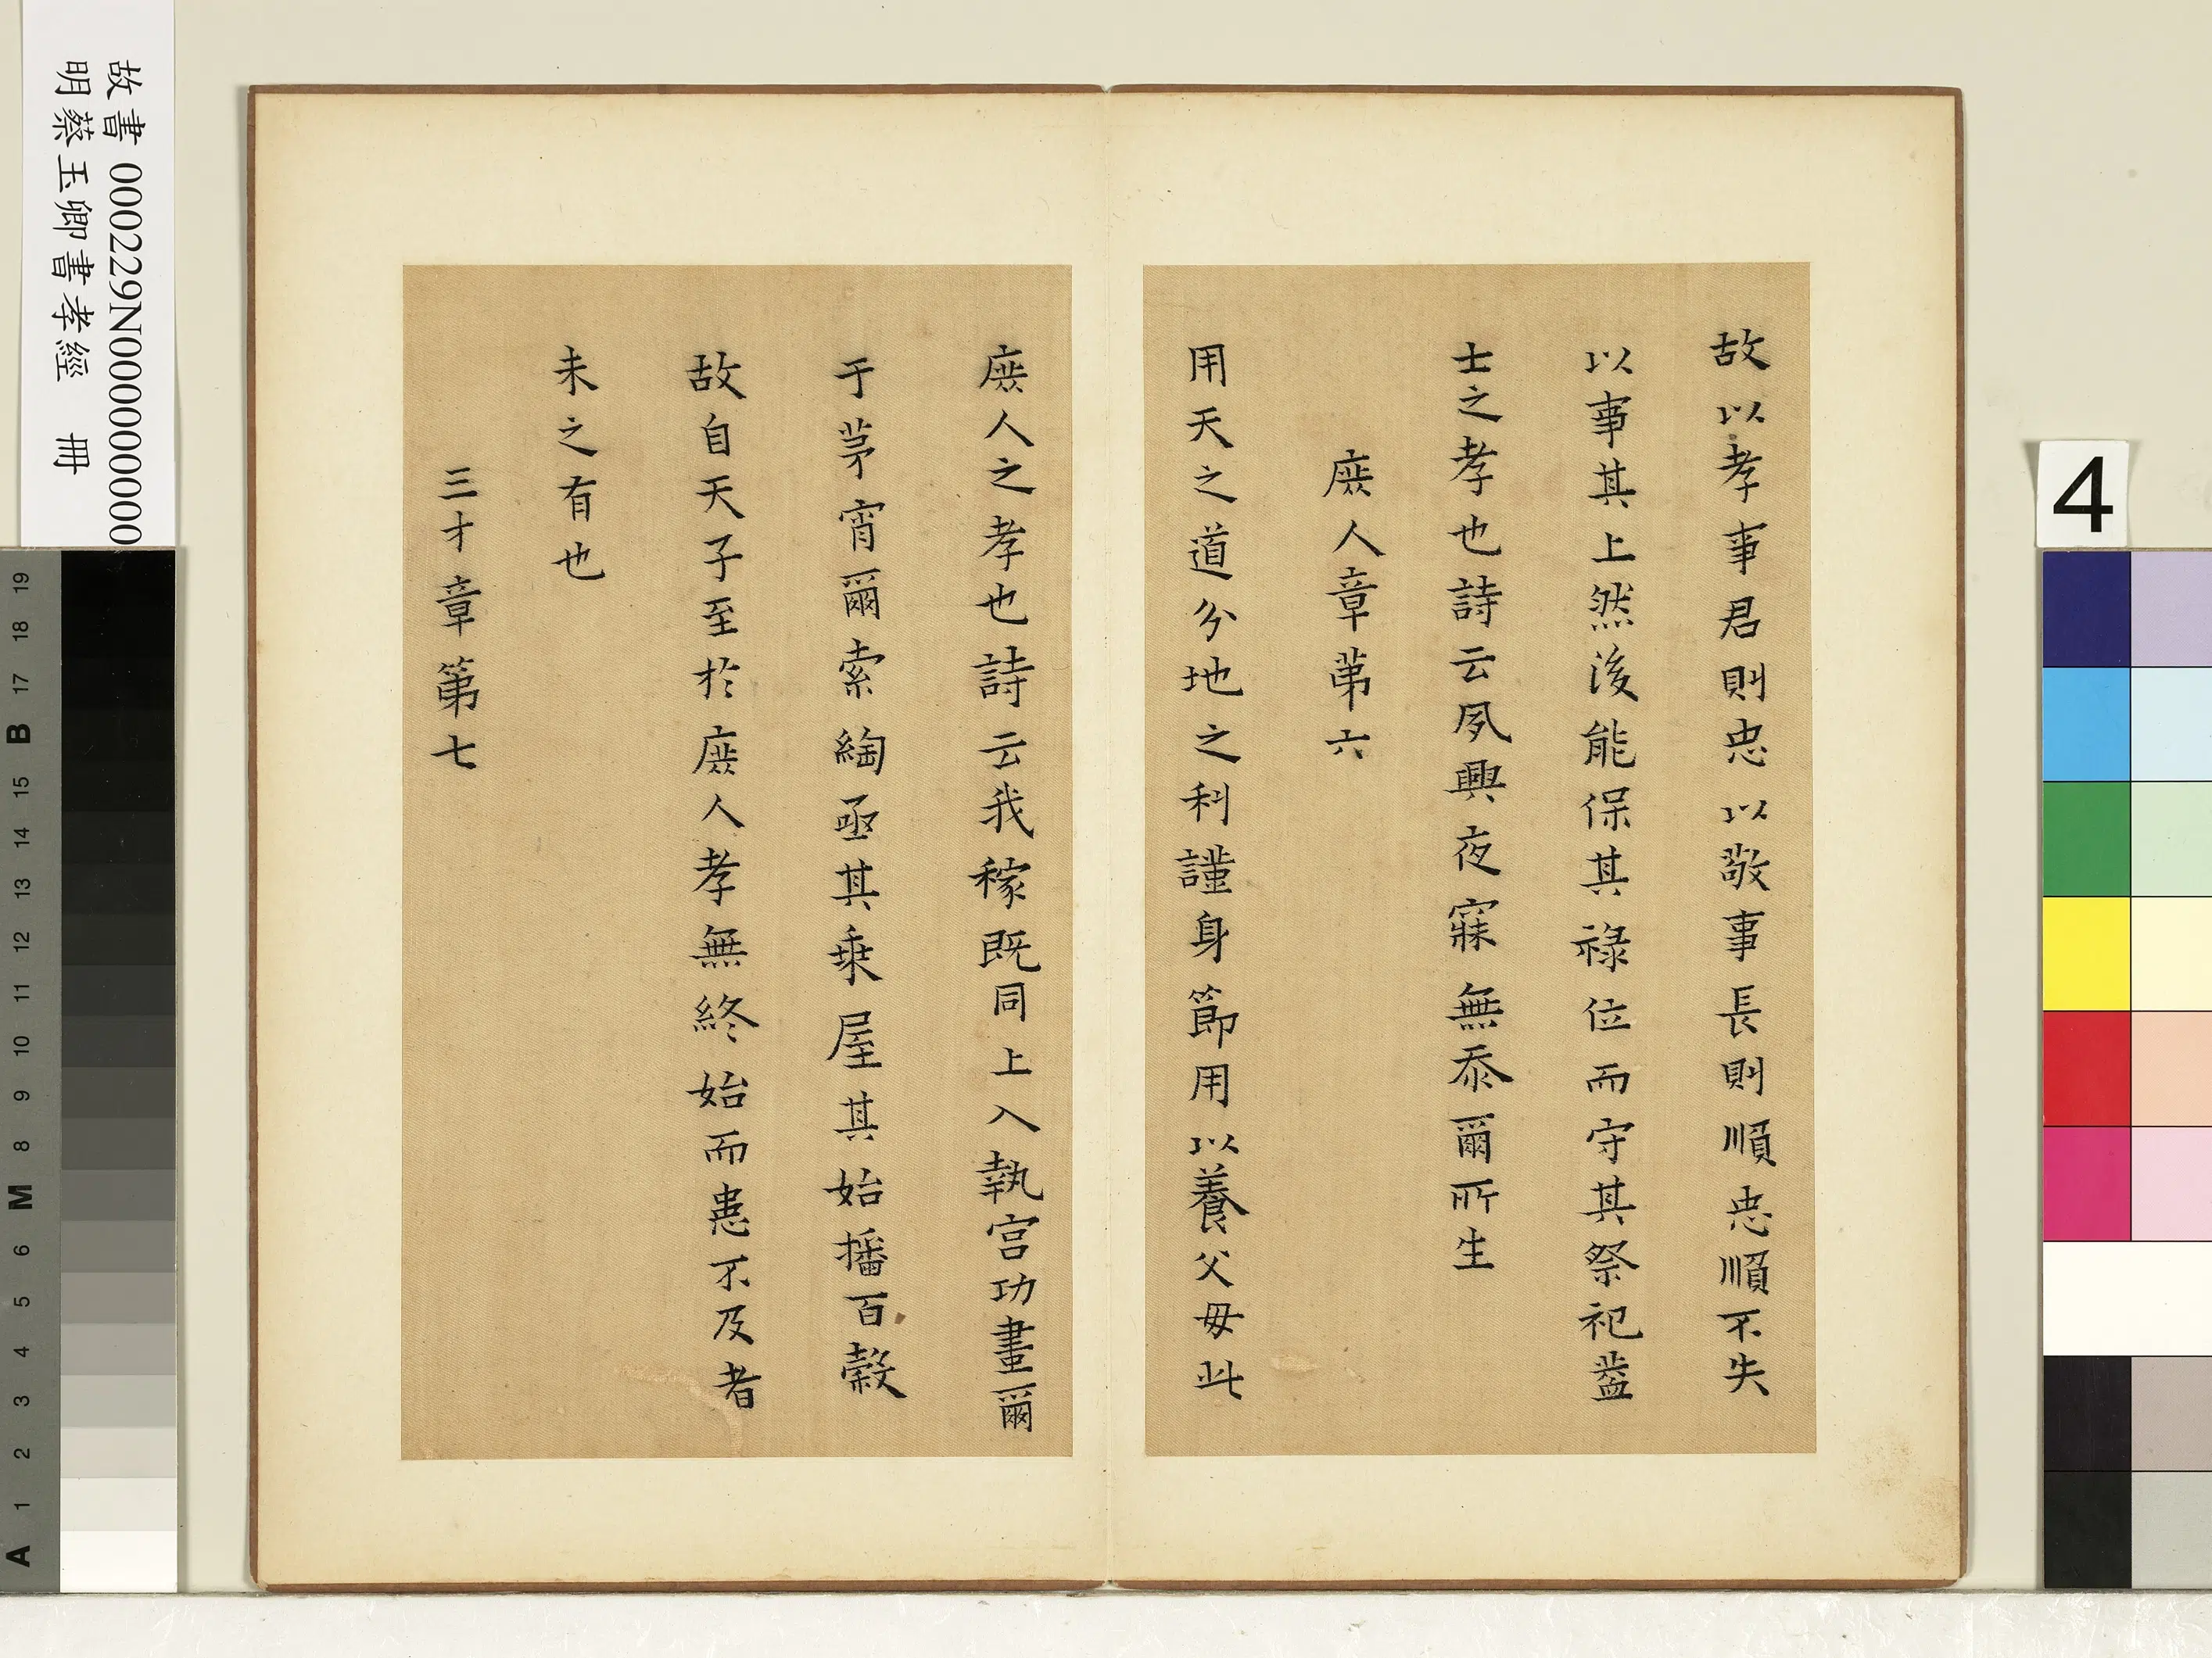 故以孝事君則忠以敬事長則順忠順不失
以事其上然後能保其祿位而守其祭祀蓋
士之孝也詩云夙興夜寐無忝爾所生
庶人章第六
用天之道分地之利謹身節用以養父母此
庶人之孝也詩云我稼既同上入執宮功晝爾
于茅宵爾索綯亟其乗屋其始播百穀
故自天子至於庶人孝無終始而患不及者
未之有也
三才章第七
故書 000229N000000000
明蔡玉卿書孝經 冊
4
19 18 17 B 15 14 13 12 11 10 9 8 M 6 5 4 3 2 1 A